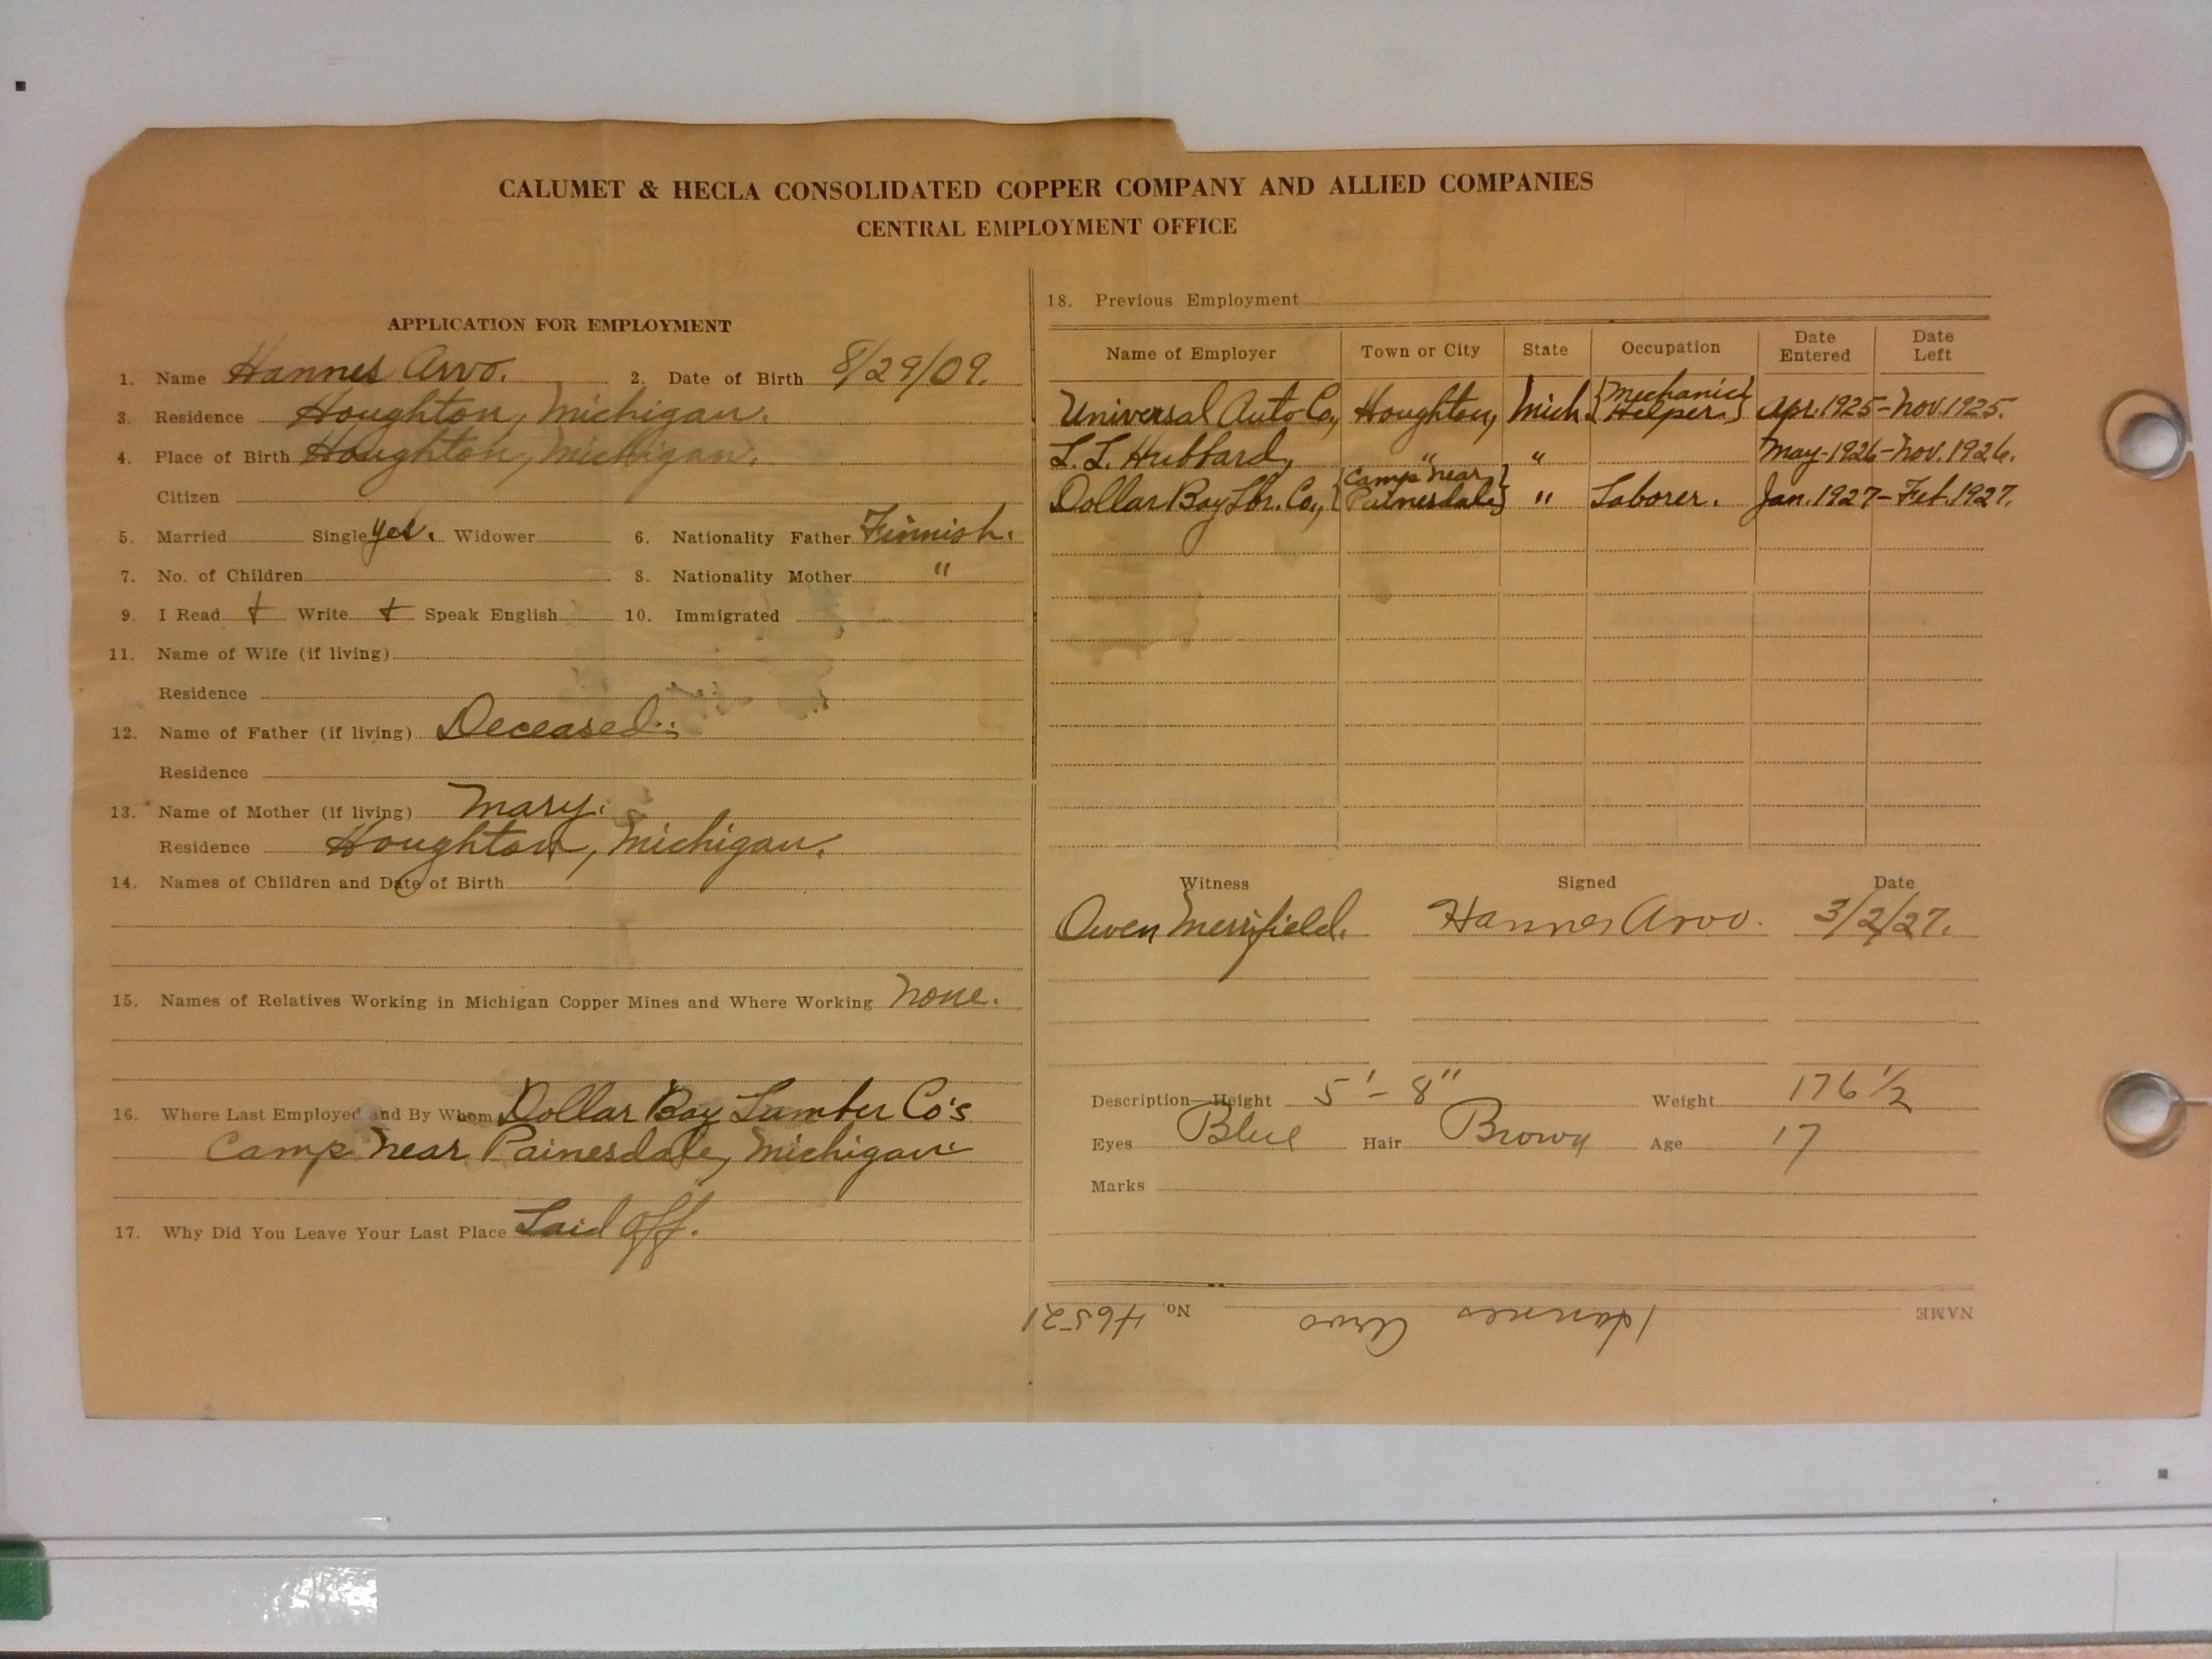 CALUMET & HECLA CONSOLIDATED COPPER COMPANY AND ALLIED COMPANIES
CENTRAL EMPLOYMENT OFFICE
APPLICATION FOR EMPLOYMENT
1. Name Hannes Arvo. 2. Date of Birth 8/29/09.
3. Residence Houghton, Michigan.
4. Place of Birth Houghton, Michigan.
Citizen
5. Married Single yes. Widower 6. Nationality Father Finnish.
7. No. of Children 8. Nationality Mother "
9. I Read + Write + Speak English 10. Immigrated
11. Name of Wife (if living)
Residence
12. Name of Father (if living) Deceased.
Residence
13. Name of Mother (if living) Mary.
Residence Houghton, Michigan.
14. Names of Children and Date of Birth
15. Names of Relatives Working in Michigan Copper Mines and Where Working None.
16. Where Last Employed and By Whom Dollar Bay Lumber Co's
Camp near Painesdale, Michigan
17. Why Did You Leave Your Last Place Laid off.
18. Previous Employment
Name of Employer Town or City State Occupation Date Entered Date Left
Universal Auto Co., Houghton, Mich. {Mechanics Helper.} Apr. 1925 - Nov. 1925.
L. L. Hubbard, " " May-1926 - Nov. 1926.
Dollar Bay Lbr. Co., {Camp near Painesdale} " Laborer. Jan. 1927 - Feb. 1927.
Witness Signed Date
Owen Merrifield. Hannes Arvo. 3/2/27.
Description—Height 5'-8" Weight 176 1/2
Eyes Blue Hair Brown Age 17
Marks
NAME Hannes Arvo No. 46521